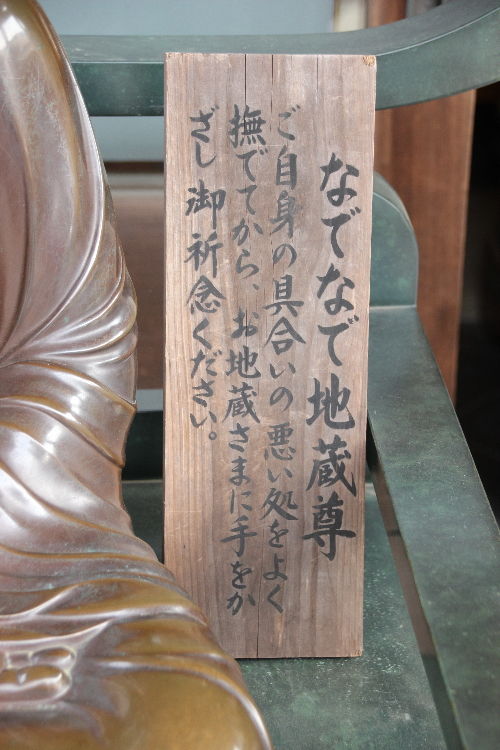 なでなで地蔵尊
ご自身の具合いの悪い処をよく
撫でてから、お地蔵さまに手をか
ざし御祈念ください。